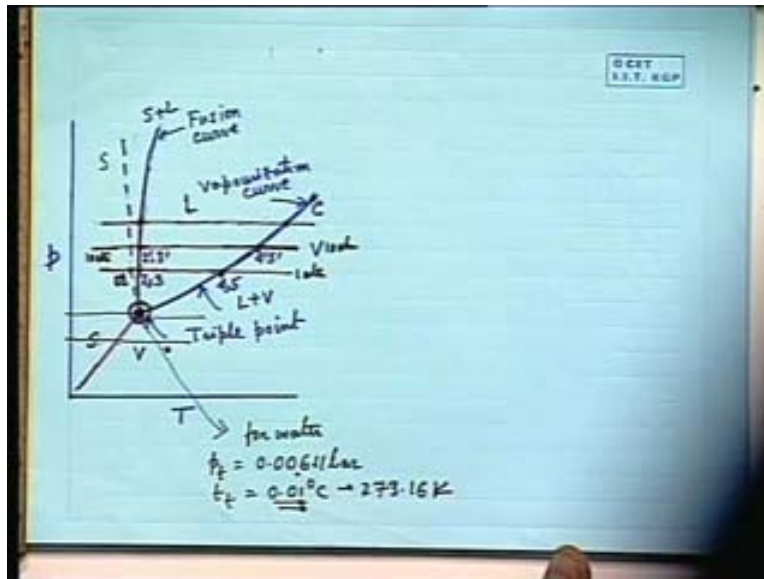 © CET
I.I.T. KGP
S+L
Fusion
curve
S
Vapourization
curve
L
C
p
V
1 atm
2,3
4,5
L+V
Triple point
S
V
T
for water
pt = 0.00611 bar
tt = 0.01°C → 273.16 K